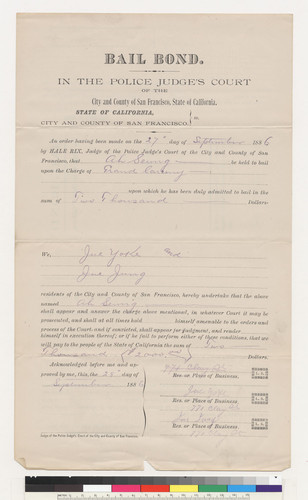 BAIL BOND.
IN THE POLICE JUDGE'S COURT
OF THE
City and County of San Francisco, State of California.
STATE OF CALIFORNIA,
CITY AND COUNTY OF SAN FRANCISCO. } ss.
An order having been made on the 27th day of September 1886
by HALE RIX, Judge of the Police Judge's Court of the City and County of San
Francisco, that Ah Seung to be held to bail
upon the Charge of Grand Larceny
upon which he has been duly admitted to bail in the
sum of Two Thousand Dollars:
We, and
Jue Jung
residents of the City and County of San Francisco, hereby undertake that the above
named Ah Seung
shall appear and answer the charge above mentioned, in whatever Court it may be
prosecuted, and shall at all times hold himself amenable to the orders and
process of the Court, and if convicted, shall appear for judgment, and render
himself in execution thereof; or if he fail to perform either of these conditions, that we
will pay to the people of the State of California the sum of Two
Thousand ($2000.00) Dollars.
Acknowledged before me and
approved by me, this the day of
September 1886
Res. or Place of Business. L. S.
Res. or Place of Business. L. S.
Res. or Place of Business. L. S.
Judge of the Police Judge's Court of the City and County of San Francisco.